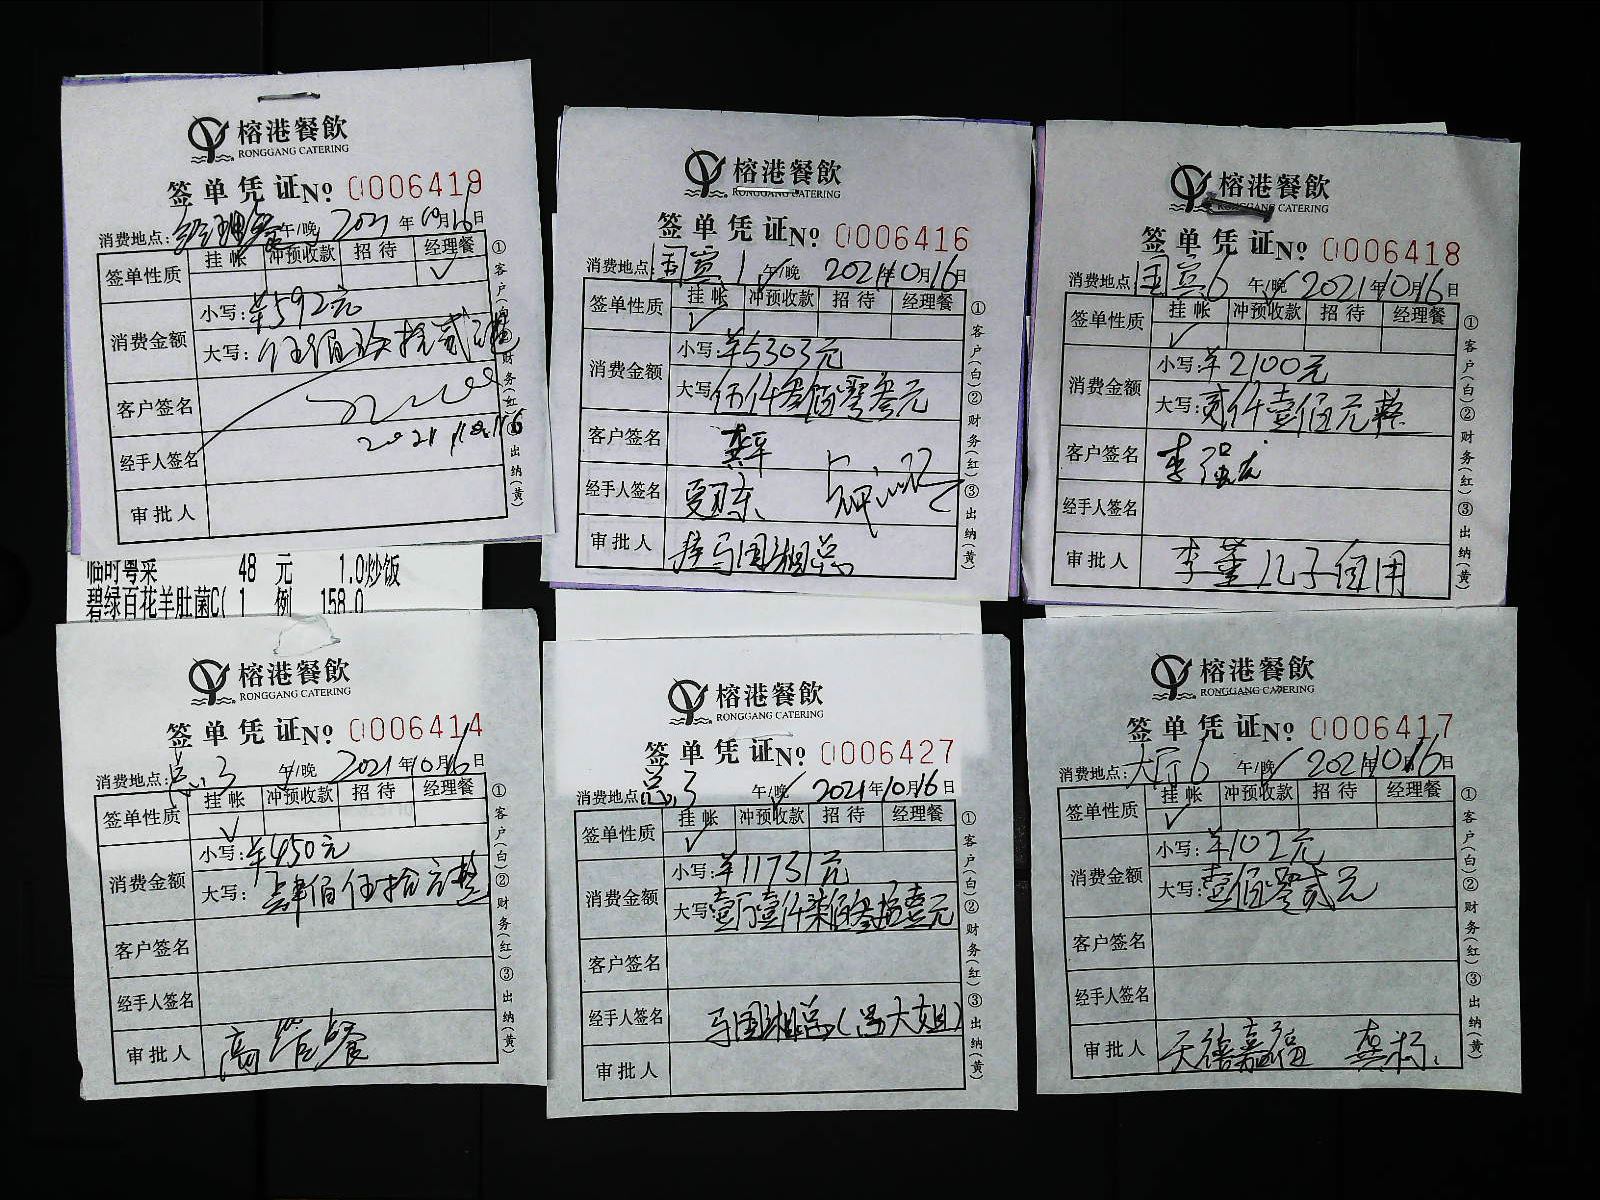 榕港餐飲
RONGGANG CATERING
签单凭证No 0006419
消费地点: 经理餐 午/晚 2021年10月16日
签单性质 挂帐 冲预收款 招待 经理餐
✓
消费金额 小写: ¥592元
大写: 伍佰玖拾贰元整
客户签名
2021.10.16
经手人签名
审批人
①客户(白)②财务(红)③出纳(黄)
榕港餐飲
RONGGANG CATERING
签单凭证No 0006416
消费地点: 国宾1 午/晚 2021年10月16日
签单性质 挂帐 冲预收款 招待 经理餐
✓
消费金额 小写: ¥5303元
大写: 伍仟叁佰零叁元
客户签名 龚平
经手人签名
审批人 挂马国湘总
①客户(白)②财务(红)③出纳(黄)
榕港餐飲
RONGGANG CATERING
签单凭证No 0006418
消费地点: 国宾6 午/晚 2021年10月16日
签单性质 挂帐 冲预收款 招待 经理餐
✓
消费金额 小写: ¥2100元
大写: 贰仟壹佰元整
客户签名 李强
经手人签名
审批人 李董儿子使用
①客户(白)②财务(红)③出纳(黄)
临时粤菜 48 元 1.0炒饭
碧绿百花羊肚菌C( 1 例 158.0
榕港餐飲
RONGGANG CATERING
签单凭证No 0006414
消费地点: 总3 午/晚 2021年10月16日
签单性质 挂帐 冲预收款 招待 经理餐
✓
消费金额 小写: ¥450元
大写: 肆佰伍拾元整
客户签名
经手人签名
审批人 高管餐
①客户(白)②财务(红)③出纳(黄)
榕港餐飲
RONGGANG CATERING
签单凭证No 0006427
消费地点: 总3 午/晚 2021年10月16日
签单性质 挂帐 冲预收款 招待 经理餐
✓
消费金额 小写: ¥11731元
大写: 壹万壹仟柒佰叁拾壹元
客户签名
经手人签名 马国湘总(冯大姐)
审批人
①客户(白)②财务(红)③出纳(黄)
榕港餐飲
RONGGANG CATERING
签单凭证No 0006417
消费地点: 大厅6 午/晚 2021年10月16日
签单性质 挂帐 冲预收款 招待 经理餐
✓
消费金额 小写: ¥102元
大写: 壹佰零贰元
客户签名
经手人签名
审批人 天禧嘉福 龚杨
①客户(白)②财务(红)③出纳(黄)